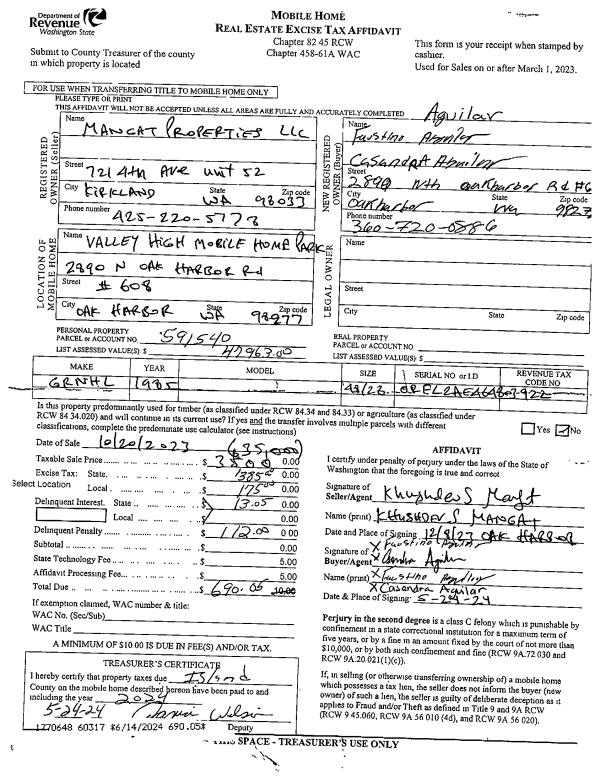 Department of
Revenue
Washington State
Submit to County Treasurer of the county
in which property is located
MOBILE HOME
REAL ESTATE EXCISE TAX AFFIDAVIT
Chapter 82 45 RCW
Chapter 458-61A WAC
This form is your receipt when stamped by
cashier.
Used for Sales on or after March 1, 2023.
FOR USE WHEN TRANSFERRING TITLE TO MOBILE HOME ONLY
PLEASE TYPE OR PRINT
THIS AFFIDAVIT WILL NOT BE ACCEPTED UNLESS ALL AREAS ARE FULLY AND ACCURATELY COMPLETED
REGISTERED OWNER (Seller)
Name MANGAT PROPERTIES LLC
Street 721 4th Ave unit 52
City KIRKLAND State WA Zip code 98033
Phone number 425-220-5773
NEW REGISTERED OWNER (Buyer)
Aguilar
Name Faustino Aguilar
Casandra Aguilar
Street 2890 Nth oakharbor Rd #6
City Oakharbor State Wa Zip code
Phone number 360-720-0586
LOCATION OF MOBILE HOME
Name VALLEY HIGH MOBILE HOME PARK
2890 N OAK HARBOR Rd
Street # 608
City OAK HARBOR State WA Zip code 98277
LEGAL OWNER
Name
Street
City State Zip code
PERSONAL PROPERTY
PARCEL or ACCOUNT NO. 591540
LIST ASSESSED VALUE(S) $ 47963.00
REAL PROPERTY
PARCEL or ACCOUNT NO.
LIST ASSESSED VALUE(S) $
MAKE YEAR MODEL SIZE SERIAL NO. or I.D. REVENUE TAX CODE NO
GRNHL 1985 48/23
Is this property predominantly used for timber (as classified under RCW 84.34 and 84.33) or agriculture (as classified under
RCW 84.34.020) and will continue in its current use? If yes and the transfer involves multiple parcels with different
classifications, complete the predominate use calculator (see instructions)
Yes No
Date of Sale 10/20/2023 (35,000)
Taxable Sale Price $ 3500 0.00
Excise Tax: State $ 385.00 0.00
Select Location
Local $ 175.00 0.00
Delinquent Interest. State $ 13.05 0.00
Local $ 0.00
Delinquent Penalty $ 112.00 0.00
Subtotal $ 0.00
State Technology Fee $ 5.00
Affidavit Processing Fee $ 5.00
Total Due $ 690.05 10.00
If exemption claimed, WAC number & title:
WAC No. (Sec/Sub)
WAC Title
A MINIMUM OF $10.00 IS DUE IN FEE(S) AND/OR TAX.
TREASURER'S CERTIFICATE
I hereby certify that property taxes due Island
County on the mobile home described hereon have been paid to and
including the year 2024
5-24-24
1270648 60317 *6/14/2024 690.05*
AFFIDAVIT
I certify under penalty of perjury under the laws of the State of
Washington that the foregoing is true and correct
Signature of
Seller/Agent Khushdev S Mangt
Name (print) KHUSHDEV S MANGAT
Date and Place of Signing 12/8/23 OAK HARBOR
Signature of X Faustino Aguilar
Buyer/Agent X Casandra Aguilar
Name (print) X Faustino Aguilar
X Casandra Aguilar
Date & Place of Signing: 5-24-24
Perjury in the second degree is a class C felony which is punishable by
confinement in a state correctional institution for a maximum term of
five years, or by a fine in an amount fixed by the court of not more than
$10,000, or by both such confinement and fine (RCW 9A.72 030 and
RCW 9A.20 021(1)(c)).
If, in selling (or otherwise transferring ownership of) a mobile home
which possesses a tax lien, the seller does not inform the buyer (new
owner) of such a lien, the seller is guilty of deliberate deception as it
applies to Fraud and/or Theft as defined in Title 9 and 9A RCW
(RCW 9 45.060, RCW 9A 56 010 (4d), and RCW 9A 56 020).
THIS SPACE - TREASURER'S USE ONLY